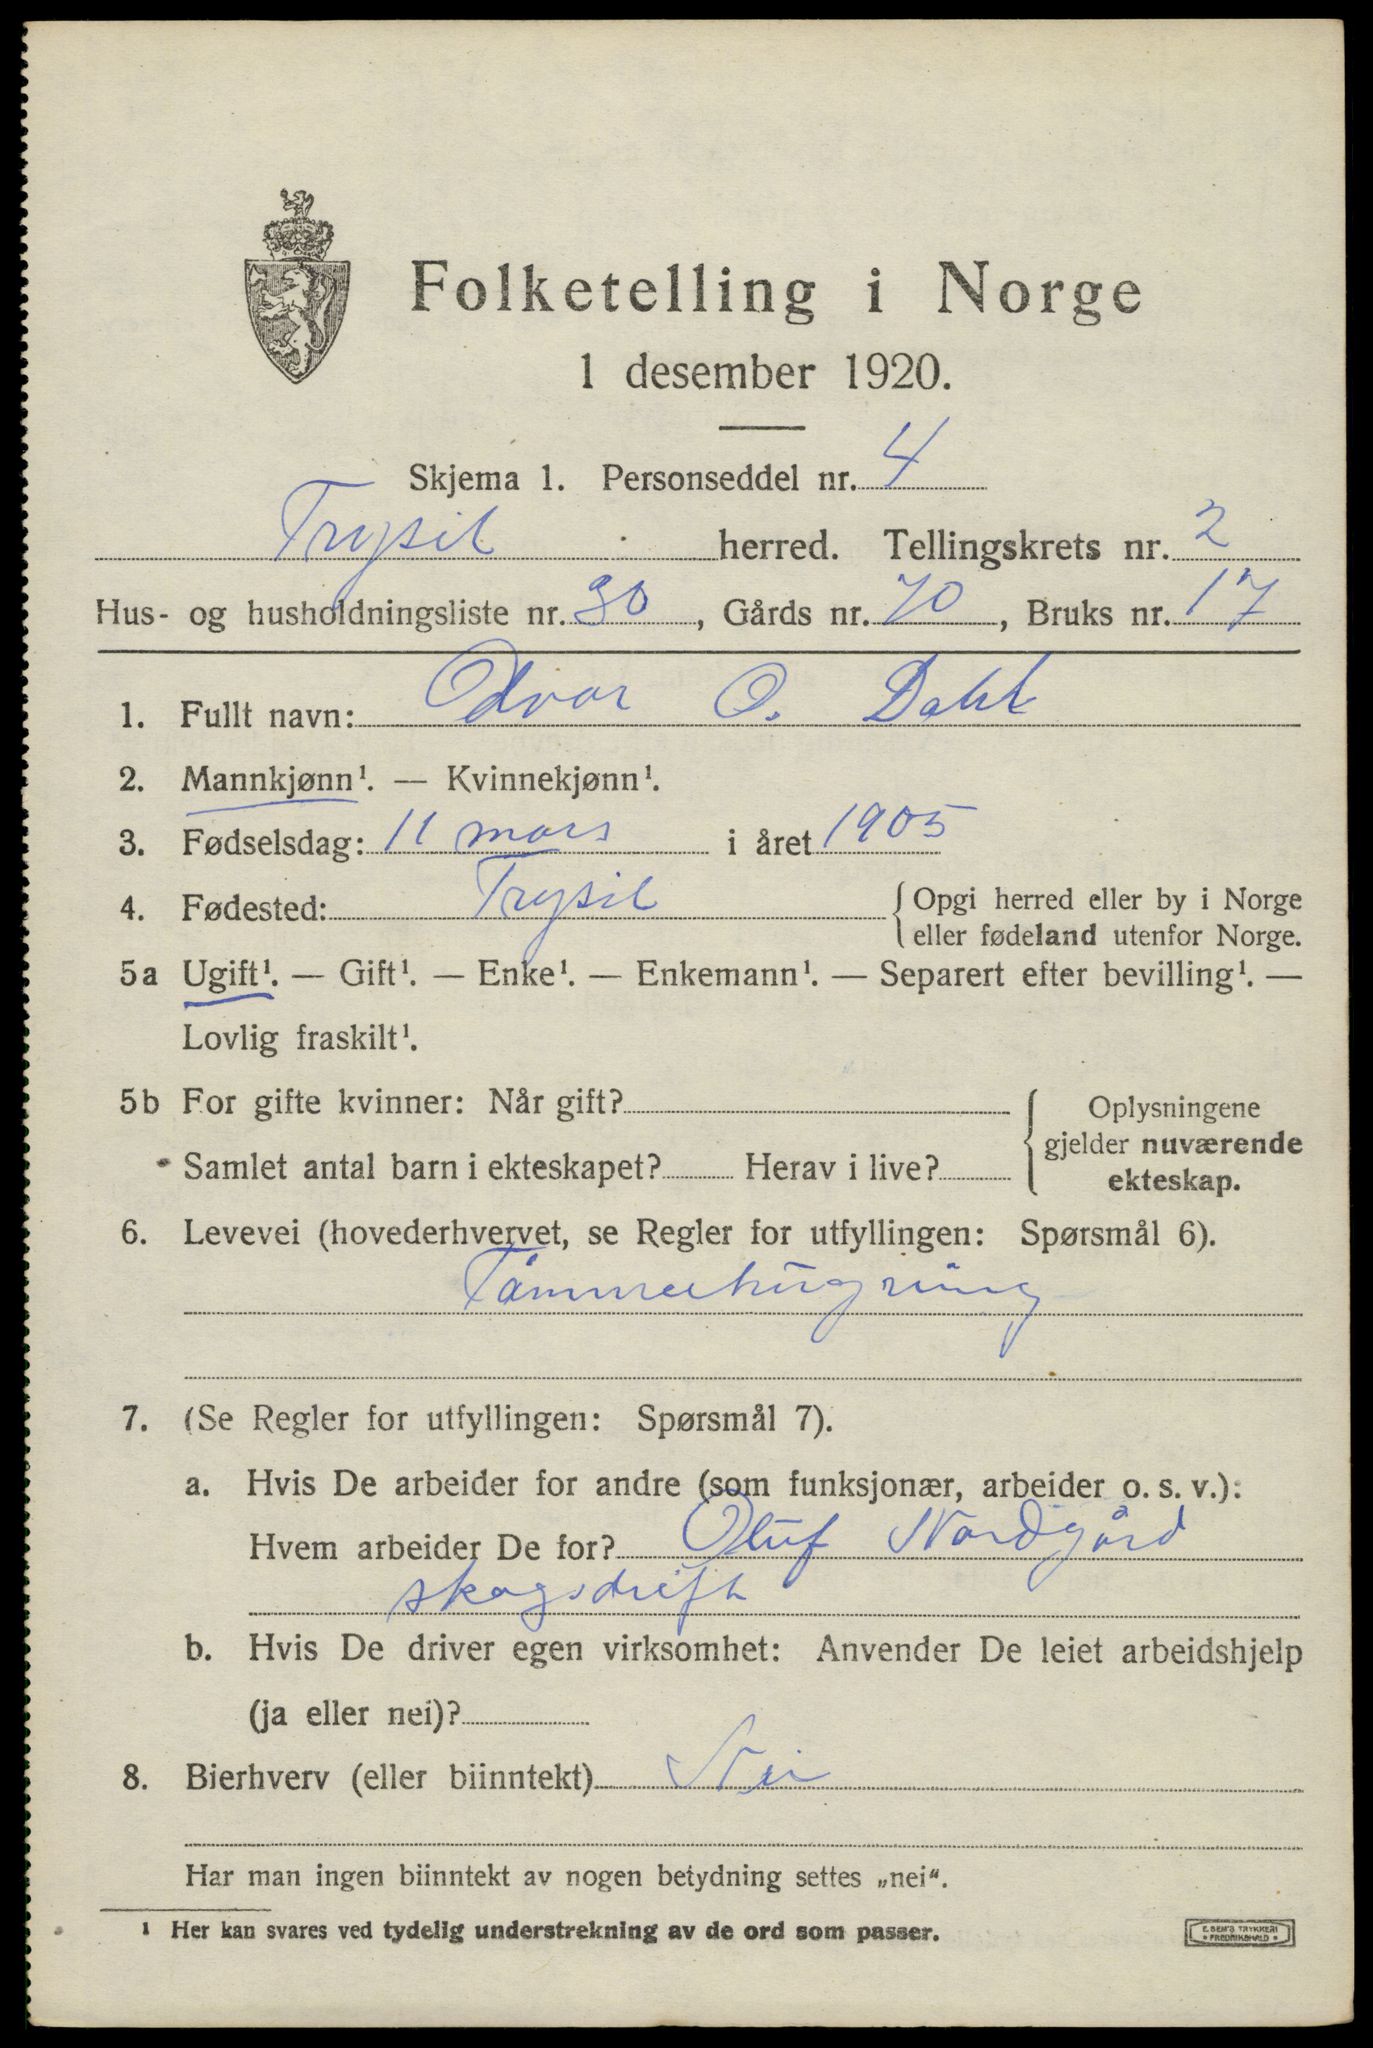 Folketelling i Norge
1 desember 1920.
Skjema 1. Personseddel nr. 4
Trysil herred. Tellingskrets nr. 2
Hus- og husholdningsliste nr. 30, Gårds nr. 70, Bruks nr. 17
1. Fullt navn: Odvar O. Dahl
2. Mannkjønn¹. — Kvinnekjønn¹.
3. Fødselsdag: 11 mars i året 1905
4. Fødested: Trysil { Opgi herred eller by i Norge
eller fødeland utenfor Norge.
5a Ugift¹. — Gift¹. — Enke¹. — Enkemann¹. — Separert efter bevilling¹. —
Lovlig fraskilt¹.
5b For gifte kvinner: Når gift? { Oplysningene
gjelder nuværende
Samlet antal barn i ekteskapet? Herav i live? ekteskap.
6. Levevei (hovederhvervet, se Regler for utfyllingen: Spørsmål 6).
Tømmerhugning
7. (Se Regler for utfyllingen: Spørsmål 7).
a. Hvis De arbeider for andre (som funksjonær, arbeider o. s. v.):
Hvem arbeider De for? Oluf Nordgård
skogsdrift
b. Hvis De driver egen virksomhet: Anvender De leiet arbeidshjelp
(ja eller nei)?
8. Bierhverv (eller biinntekt) Nei
Har man ingen biinntekt av nogen betydning settes „nei“.
¹ Her kan svares ved tydelig understrekning av de ord som passer.
E. SEM'S TRYKKERI
• FREDRIKSHALD •